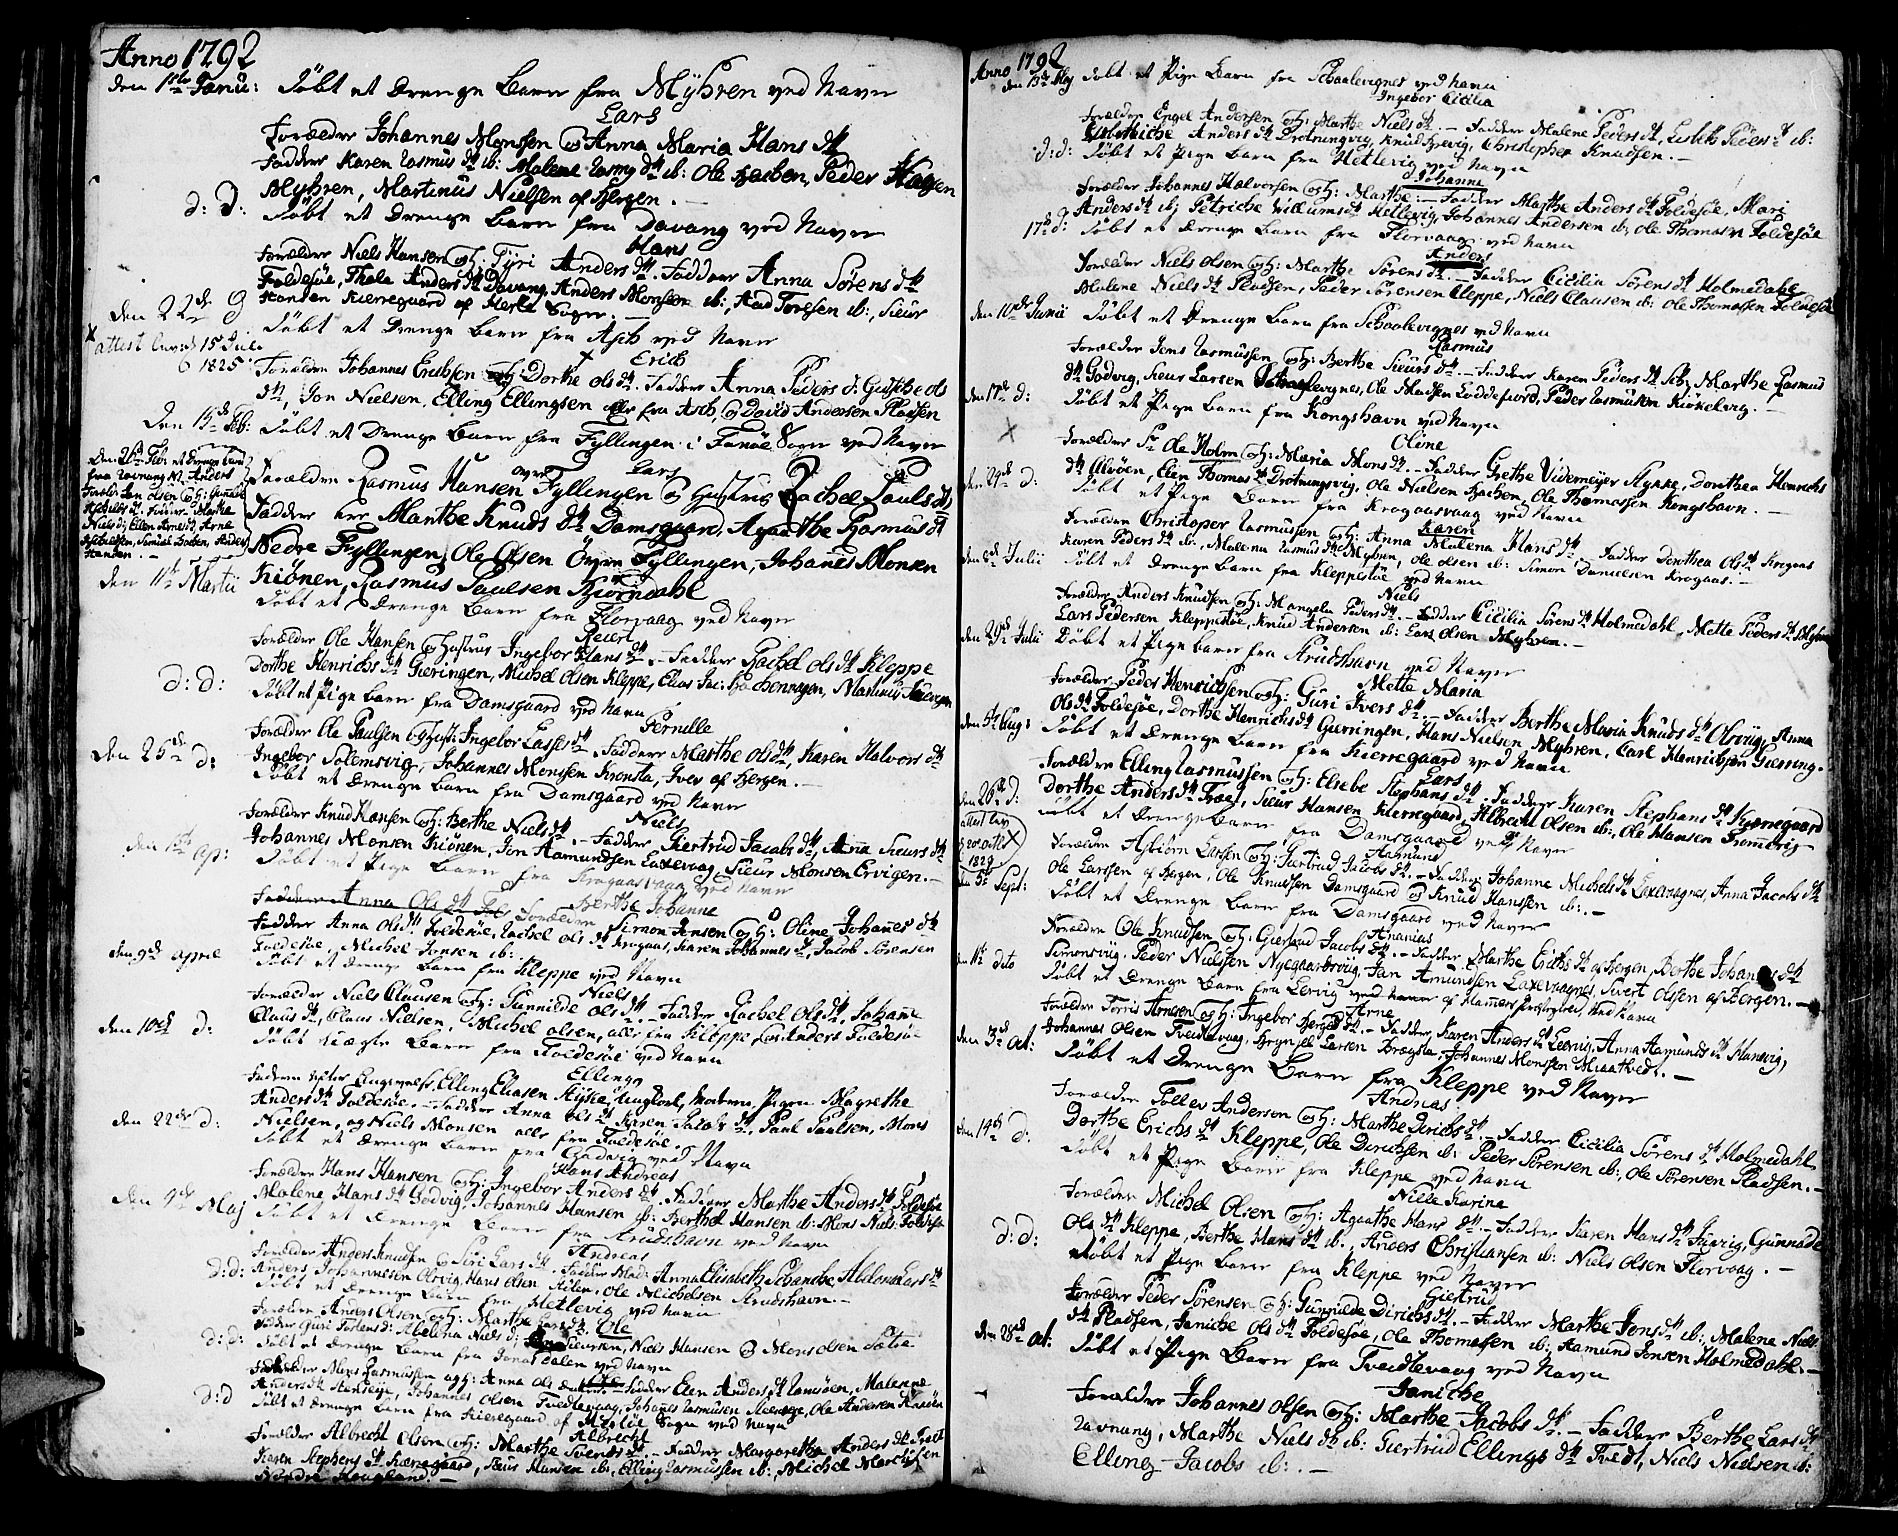 Anno 1792
den 1ste Janu: Döbt et Drenge Barn fra Myhren ved Navn
Lars
Forældre Johannes Monssen og Anna Maria Hans dtr
Faddere Karen Rasmus dtr ib: Malene Rasmus dtr ib: Ole Hachen, Peder Hansen
Myhren, Martinus Nielsen af Bergen. —
d: D: Döbt et Drenge Barn fra Davang ved Navn
Hans
Forældre Niels Hansen og h: Tyri Anders dtr. Faddere Anna Sörens dtr
Foldesöe, Thale Anders dtr Davang, Anders Monsen ib:, Aad Toresen ib:, Siur
Hansen Kierregaard af Herlö Sogn. —
den 22de D Döbt et Drenge Barn fra Asch ved Navn
Erich
attest 15 Juli
1825
Forældre Johannes Erichsen og h: Dorthe Ols dtr. Faddere Anna Peders d: Giertche Ols
dtr, Jon Nielsen, Elling Ellingsen alle fra Asch og David Andersen Pladsen
Den 15de Feb: Döbt et Drenge Barn fra Fyllingen i Fanöe Sogn ved Navn
Lars
Den 26de Feb: et Drenge Barn
fra Ravnang N: Anders
Forældre Lars Olsen og h: Gunilde
Michels d: Faddere Marthe
Niels d: Ellen Arne d: Arne
Michelsen, Simon Hachen, Anders
Hansen. —
Forældre Rasmus Hansen Fyllingen og Hustrue Rachel Pouls dtr
Faddere ere Marthe Knuds dtr Damsgaard, Agaathe Rasmus dtr
Nedre Fyllingen, Ole Olsen Övre Fyllingen, Johanes Monsen
Kiönen, Rasmus Paulsen Biörndahl
den 11te Martii Döbt et Drenge Barn fra Florvaag ved Navn
Reiert
Forældre Ole Hansen og Hustrue Ingebor Hans dtr. — Faddere Rachel Ols dtr Kleppe
Dorthe Henrichs dtr Gieringen, Michel Olsen Kleppe, Martinus
d: d: Döbt et Pige Barn fra Damsgaard ved Navn
Pernille
Forældre Ole Paulsen og Hust: Ingebor Lasses dtr. Faddere Marthe Ols dtr, Karen Halvors dtr
Ingebor Solemsvig, Johannes Monssen Kronsta, Iver af Bergen. —
Den 25de d: Döbt et Drenge Barn fra Damsgaard ved Navn
Niels
Forældre Knud Hansen og h: Berthe Niels dtr. — Faddere Giertrud Jacobs dtr, Ana Siurs dtr
Johannes Monsen Kiönen, Jon Aamundsen Laxevaag, Siur Monsen Ervigen. —
den 1ste Ap: Döbt et Pige Barn fra Krogaasvaag ved Navn
Berthe Johanne
Faddere Anna Ols dtr Forældre Simon Jensen og h: Oline Johanes dtr
Faddere Anna Ols dtr Foldesöe, Rachel Ols dtr Krogaas, Karen Johannes dtr, Jacob Sörensen
Foldesöe, Michel Jonsen ib: —
den 9de Apple Döbt et Drenge Barn fra Kleppe ved Navn
Niels
Forældre Niels Clausen og h: Gunnilde Ols dtr. — Faddere Rachel Ols dtr Johane
Claus dtr, Claus Nielsen, Michel Olsen, alle fra Kleppe, Lars Anders Foldesöe
den 10de d: Döbt uægte Barn fra Foldesöe ved Navn
Elling
Faderen efter Angivelse Elling Eliasen Askøe Ungkarl, Moderen Pigen Magrethe
Anders dtr Foldesöe. — Faddere Anna Ols dtr Karen Jacobs dtr, Paul Paulsen, Mons
Nielsen, og Niels Monsen alle fra Foldesöe.
den 22de d: Döbt et Drenge Barn fra Godvig ved Navn
Hans Andreas
Forældre Hans Hansen og h: Ingebor Anders dtr. Faddere Marthe Anders dtr Foldesöe
Malene Hans dtr Godvig, Johannes Hansen ib: Berthel Hansen ib: Mons Niels Foldesöe
den 4de Maj Döbt et Drenge Barn fra Strudshavn ved Navn
Andreas
Forældre Anders Knudsen og Siri Lars dtr. Faddere Mad: Anna Elisabeth Schanche Abelona Lars dtr
Anders Johannesen Olsvig Hans Olsen Ole Michelsen Strudshavn. —
d: d: Döbt et Drenge Barn fra Hetlevig ved Navn
Ole
Forældre Anders Olsen og h: Marthe Lars dtr
Faddere Guri Tostens d: Abelona Niels d: Siursen, Niels Hansen og Mons Olsen
d: d: Döbt et Drenge Barn fra Jonas Dalen ved Navn
Forældre Mons Rasmussen og h: Anna Ols Faddere Elen Anders dtr Ramsöen, Malenne
Anders dtr Johannes Olsen Tvedtevaag, Johanes Rasmussen Ole Andersen
d: d Döbt et Drenge Barn fra Kierregaard af Sogn ved Navn
Albrecht
Forældre Albrecht Olsen og h: Marthe Siurds dtr. — Faddere Margaretha Anders dtr Træt
Karen Stephens dtr Kærregaard, Siur Hansen ib:, Elling Rasmussen ib:, Michel Marcusen
Nordre Haugland. —
Anno 1792
den 13de Maj Döbt et Pige Barn fra Schaalevignes ved Navn
Ingebor Cicilia
Forældre Engel Andersen og h: Marthe Niels dtr. — Faddere Malene Peders dtr, Lisbeth Peders dtr ib:
Anders dtr Drotningvig, Knud Christopher Knudsen. —
d: d: Döbt et Pige Barn fra Hetlevig ved Navn
Johanna
Forældre Johannes Halvorsen og h: Marthe. — Faddere Marthe Anders dtr Foldesöe, Mari
Anders dtr ib; Petriche Villums dtr Hetlevig, Johannes Andersen ib: Ole Thomasen Foldesöe
17de d: Döbt et Drenge Barn fra Florvaag ved Navn
Anders
Forældre Niels Olsen og h: Marthe Sörens dtr. — Faddere Cicilia Sörens dtr Holmedahl
Malene Niels dtr Pladsen, Peder Sörensen Cleppe, Niels Clausen ib: Ole Thomassen Foldesöe
den 10de Junii Döbt et Drenge Barn fra Schaalevignes ved Navn
Rasmus
Forældre Jens Rasmussen og h: Berthe Siurs dtr. — Faddere Karen Peders dtr ib; Marthe Rasmus
dtr Godvig, Siur Larsen Schaalevignes, Ole Madsen Loddefiord, Peder Rasmusen Kiökelvig. —
den 17de d: Döbt et Pige Barn fra Kongshavn ved Navn
Oline
Forældre Sr Ole Holm og h: Maria Mons dtr. — Faddere Grethe Videmeyer Dorothea Henrichs
dtr Alvöen, Elen Thomas dtr Drotningsvig, Ole Nielsen Hachen, Ole Thomassen Kongshavn. —
den 24de d: Döbt et Pige Barn fra Krogaasvaag ved Navn
Karen
Forældre Christopher Rasmussen og h: Anna Malena Hans dtr. Faddere Dorothea Ols dtr Krogaas
Karen Peders dtr ib:, Malena Rasmus dtr Myhren, Ole Olsen ib: Simon Danielsen Krogaas. —
den Julii Döbt et Drenge Barn fra Kleppestöe ved Navn
Niels
Forældre Anders Knudsen og h: Mangela Peders dtr. — Faddere Cicilia Sörens dtr Holmedahl, Mette Peders dtr Myhren
Lars Pedersen Kleppestöe, Knud Andersen ib: Lars Olsen Myhren. —
den 29de Julii Döbt et Pige Barn fra Strudshavn ved Navn
Mette Maria
Forældre Peder Henrichsen og h: Guri Ivers dtr. — Faddere Berthe Maria Knuds dtr Olsvig, Anna
Ols dtr Foldesöe, Dorthe Henrichs dtr Gierringen, Hans Nielsen Myhren, Carl Henrichsen Giering. —
den 5te Aug: Döbt et Drenge Barn fra Kierregaard ved Navn
Lars
Forældre Elling Rasmussen og h: Elsebe Stephans dtr. Faddere Karen Stephans dtr Kierregaard
Dorthe Anders dtr Træt, Siur Hansen Kierregaard, Albrecht Olsen ib:, Ole Hansen Tromevig
den 26de d: Döbt et Drenge Barn fra Damsgaard ved Navn
Aamund
attest
20 oct
1829
Forældre Asbiörn Larsen og h: Giertrud Jacobs dtr. — Faddere Johanne Michels dtr Laxevagnes, Anna Jacobs dtr
Ole Larssen af Bergen, Ole Knudssen Damsgaard og Knud Hanssen ib:. —
den 5te Sept: Döbt et Drenge Barn fra Damsgaard ved Navn
Ananias
Forældre Ole Knudsen og h: Giertrud Jacobs dtr. — Faddere Marthe Erichs dtr af Bergen, Berthe Johanes dtr
Simonsviig, Peder Nielsen Nyegaardsviig, Jan Amundsen Laxevaagnes, Sivert Olsen af Bergen. —
den 11te dito Döbt et Drenge Barn fra Lervig ved Navn af Hammers Præstegield, Ved Navn
Arne
Forældre Torris Arnesen og h: Ingebor dtr. — Faddere Karen Anders dtr Leervig, Anna Aamunds dtr Hanevig,
Johannes Olsen Tvedtevaag, Brynild Larsen Johannes Monssen —
den 3de Oct: Döbt et Drenge Barn fra Kleppe ved Navn
Andreas
Forældre Tollev Andersen og h: Marthe Dirichs dtr. — Faddere Cicilia Sörens dtr Holmedahl
Dorthe Erichs dtr Kleppe, Ole Dirichsen ib: Peder Sörensen ib:, Ole Sörensen Pladsen. —
den 14de d: Döbt et Pige Barn fra Kleppe ved Navn
Nille Karina
Forældre Michel Olsen og h: Agaathe Hans dtr. — Faddere Karen Hans dtr Juvig, Gunnade
Ols dtr Kleppe, Berthe Hans dtr ib:, Anders Christiansen ib: Niels Olsen Florvaag. —
d: d: Döbt et Pige Barn fra Kleppe ved Navn
Giertrud
Forældre Peder Sörensen og h: Gunnilde Dirichs dtr. — Faddere Marthe Jons dtr ib:, Malena Niels
dtr Pladsen, Janiche Ols dtr Foldesöe, Ole Thomassen ib:, Aamund Jonsen Holmedahl. —
den 28de Oct: Döbt et Pige Barn fra Tvedtevaag ved Navn
Janiche
Forældre Johannes Olsen og h: Marthe Jacobs dtr. — Faddere Berthe Lars dtr
Ravnang, Marthe Niels dtr ib: Giertrud Ellings dtr Tvedt, Niels Nielsen ib:
Elling Jacobs ib:. —